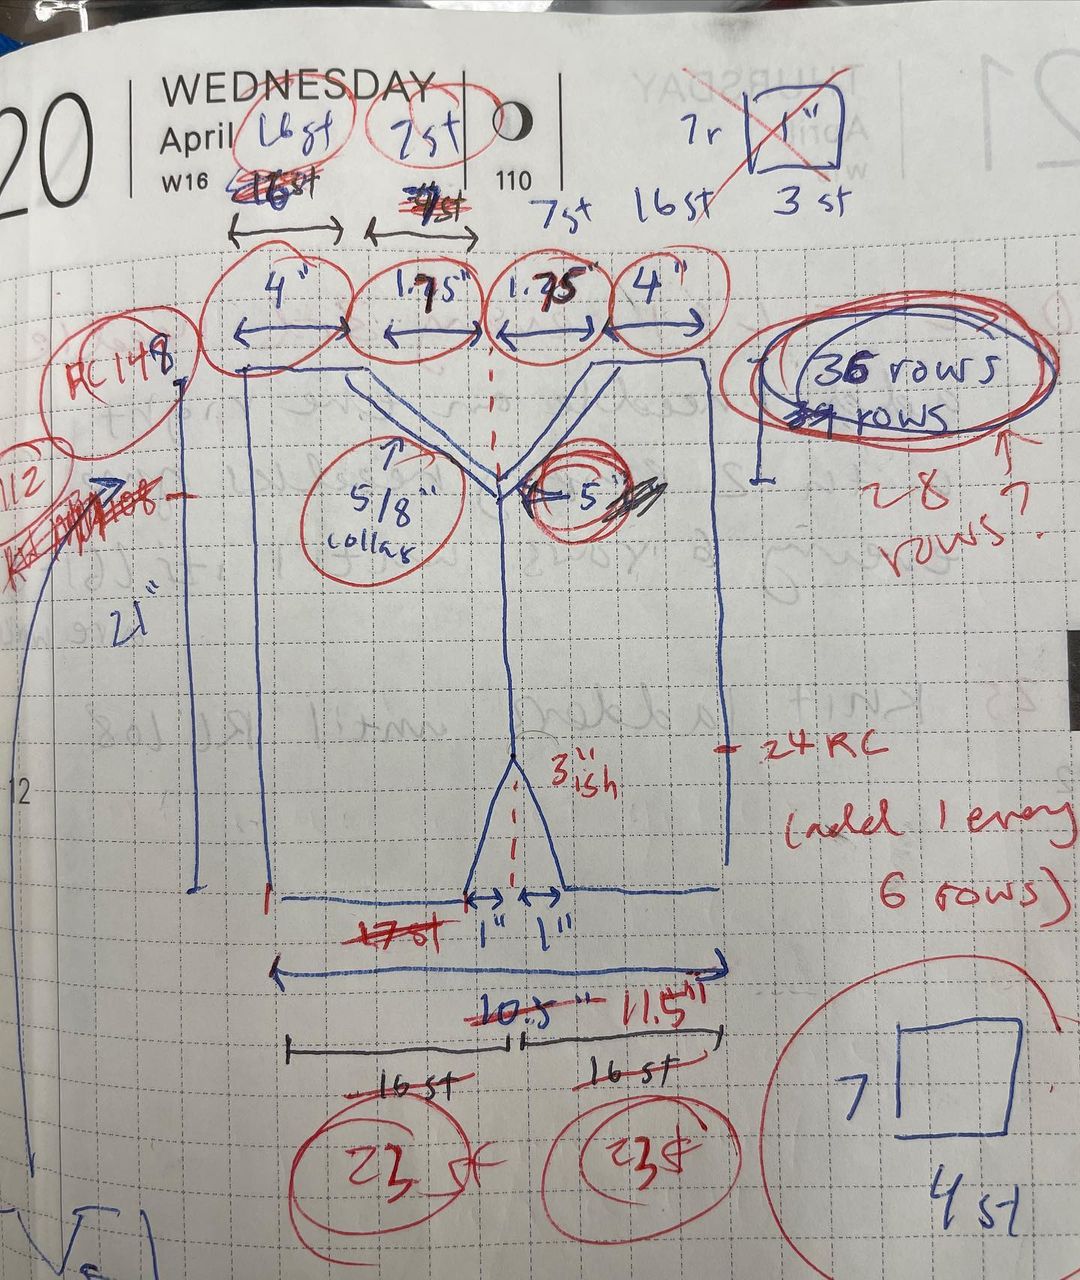 20
WEDNESDAY
April
W16
110
16st
7st
16st
7st
7r
1"
3 st
7st
16st
4"
1.75"
1.75"
4"
RC 148
112
21"
5/8"
collar
5"
36 rows
rows
28
rows?
3"
ish
24 RC
(add 1 every
6 rows)
12
17st
1"
1"
10.5"
11.5"
16 st
16 st
23 st
23st
7
4 st